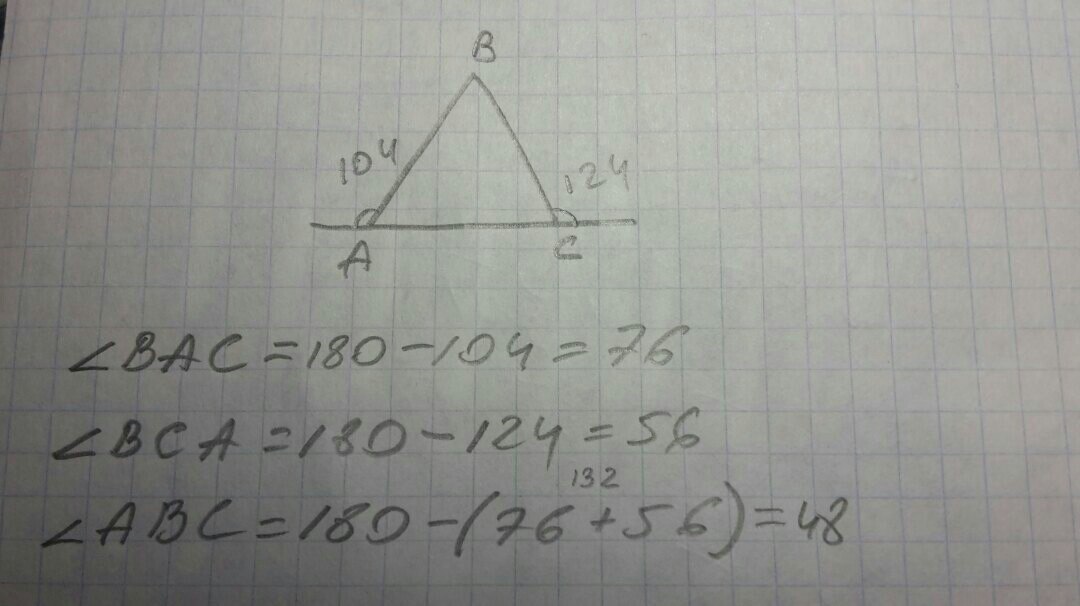 B
104 124
A C
∠BAC = 180 - 104 = 76
∠BCA = 180 - 124 = 56
132
∠ABC = 180 - (76 + 56) = 48